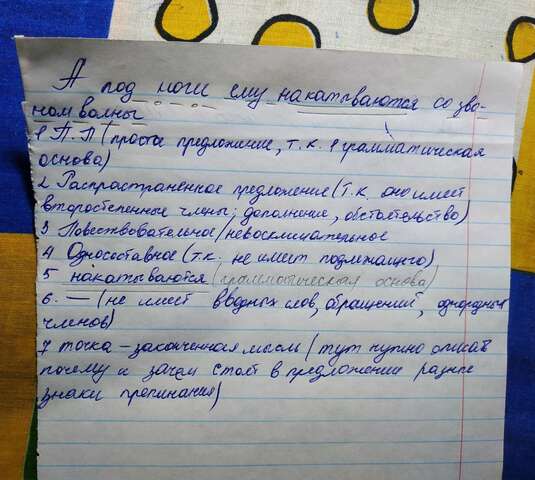 А под ноги ему накатываются со зво-
ном волны
1 П.П (проста предложение, т.к. 1 грамматическая
основа)
2 Распространённое предложение (т.к. оно имеет
второстепенные члены; дополнение, обстоятельство)
3 Повествовательное/невосклицательное
4 Односоставное (т.к. не имеет подлежащего)
5 накатываются (грамматическая основа)
6. — (не имеет вводных слов, обращений, однородных
членов)
7 точка – законченная мысль (тут нужно описать
почему и зачем стоят в предложении разные
знаки препинания)